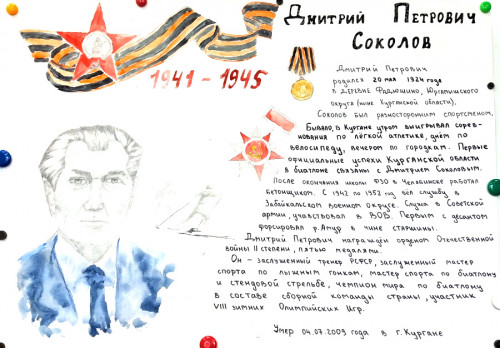 Дмитрий Петрович
Соколов
1941 - 1945
Дмитрий Петрович
родился 20 мая 1924 года
в деревне Фадюшино, Юргамышского
округа (ныне Курганской области).
Соколов был разносторонним спортсменом.
Бывало, в Кургане утром выигрывал сорев-
нования по лёгкой атлетике, днём по
велосипеду, вечером по городкам. Первые
официальные успехи Курганской области
в биатлоне связаны с Дмитрием Соколовым.
После окончания школы ФЗО в Челябинске работал
бетонщиком. С 1942 по 1952 год вёл службу в
Забайкальском военном округе. Служа в Советской
армии, участвовал в ВОВ. Первым с десантом
форсировал р. Амур в чине старшины.
Дмитрий Петрович награждён орденом Отечественной
войны II степени, пятью медалями.
Он - заслуженный тренер РСФСР, заслуженный мастер
спорта по лыжным гонкам, мастер спорта по биатлону
и стендовой стрельбе, чемпион мира по биатлону
в составе сборной команды страны, участник
VIII зимних Олимпийских Игр.
Умер 04.07.2009 года в г. Кургане